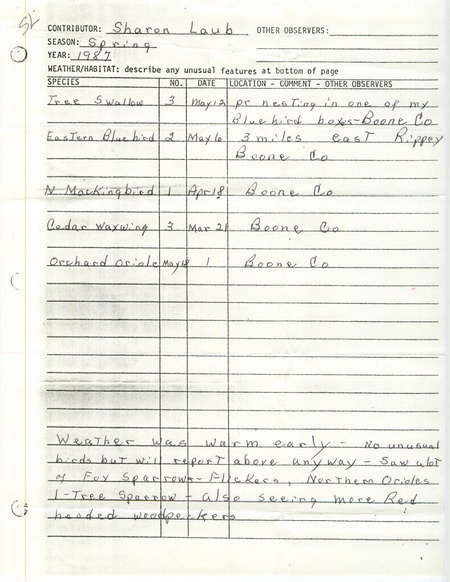 SL
CONTRIBUTOR: Sharon Laub OTHER OBSERVERS:
SEASON: Spring
YEAR: 1987
WEATHER/HABITAT: describe any unusual features at bottom of page
SPECIES NO. DATE LOCATION - COMMENT - OTHER OBSERVERS
Tree Swallow 3 May 12 pr nesting in one of my
Bluebird boxes-Boone Co
Eastern Bluebird 2 May 6 3 miles east Rippey
Boone Co
N Mockingbird 1 Apr 18 Boone Co
Cedar Waxwing 3 Mar 21 Boone Co
Orchard Oriole May 18 1 Boone Co
Weather was warm early - No unusual
birds but will report above anyway - Saw a lot
of Fox Sparrows - Flickers, Northern Orioles
1-Tree Sparrow - also seeing more Red
headed woodpeckers